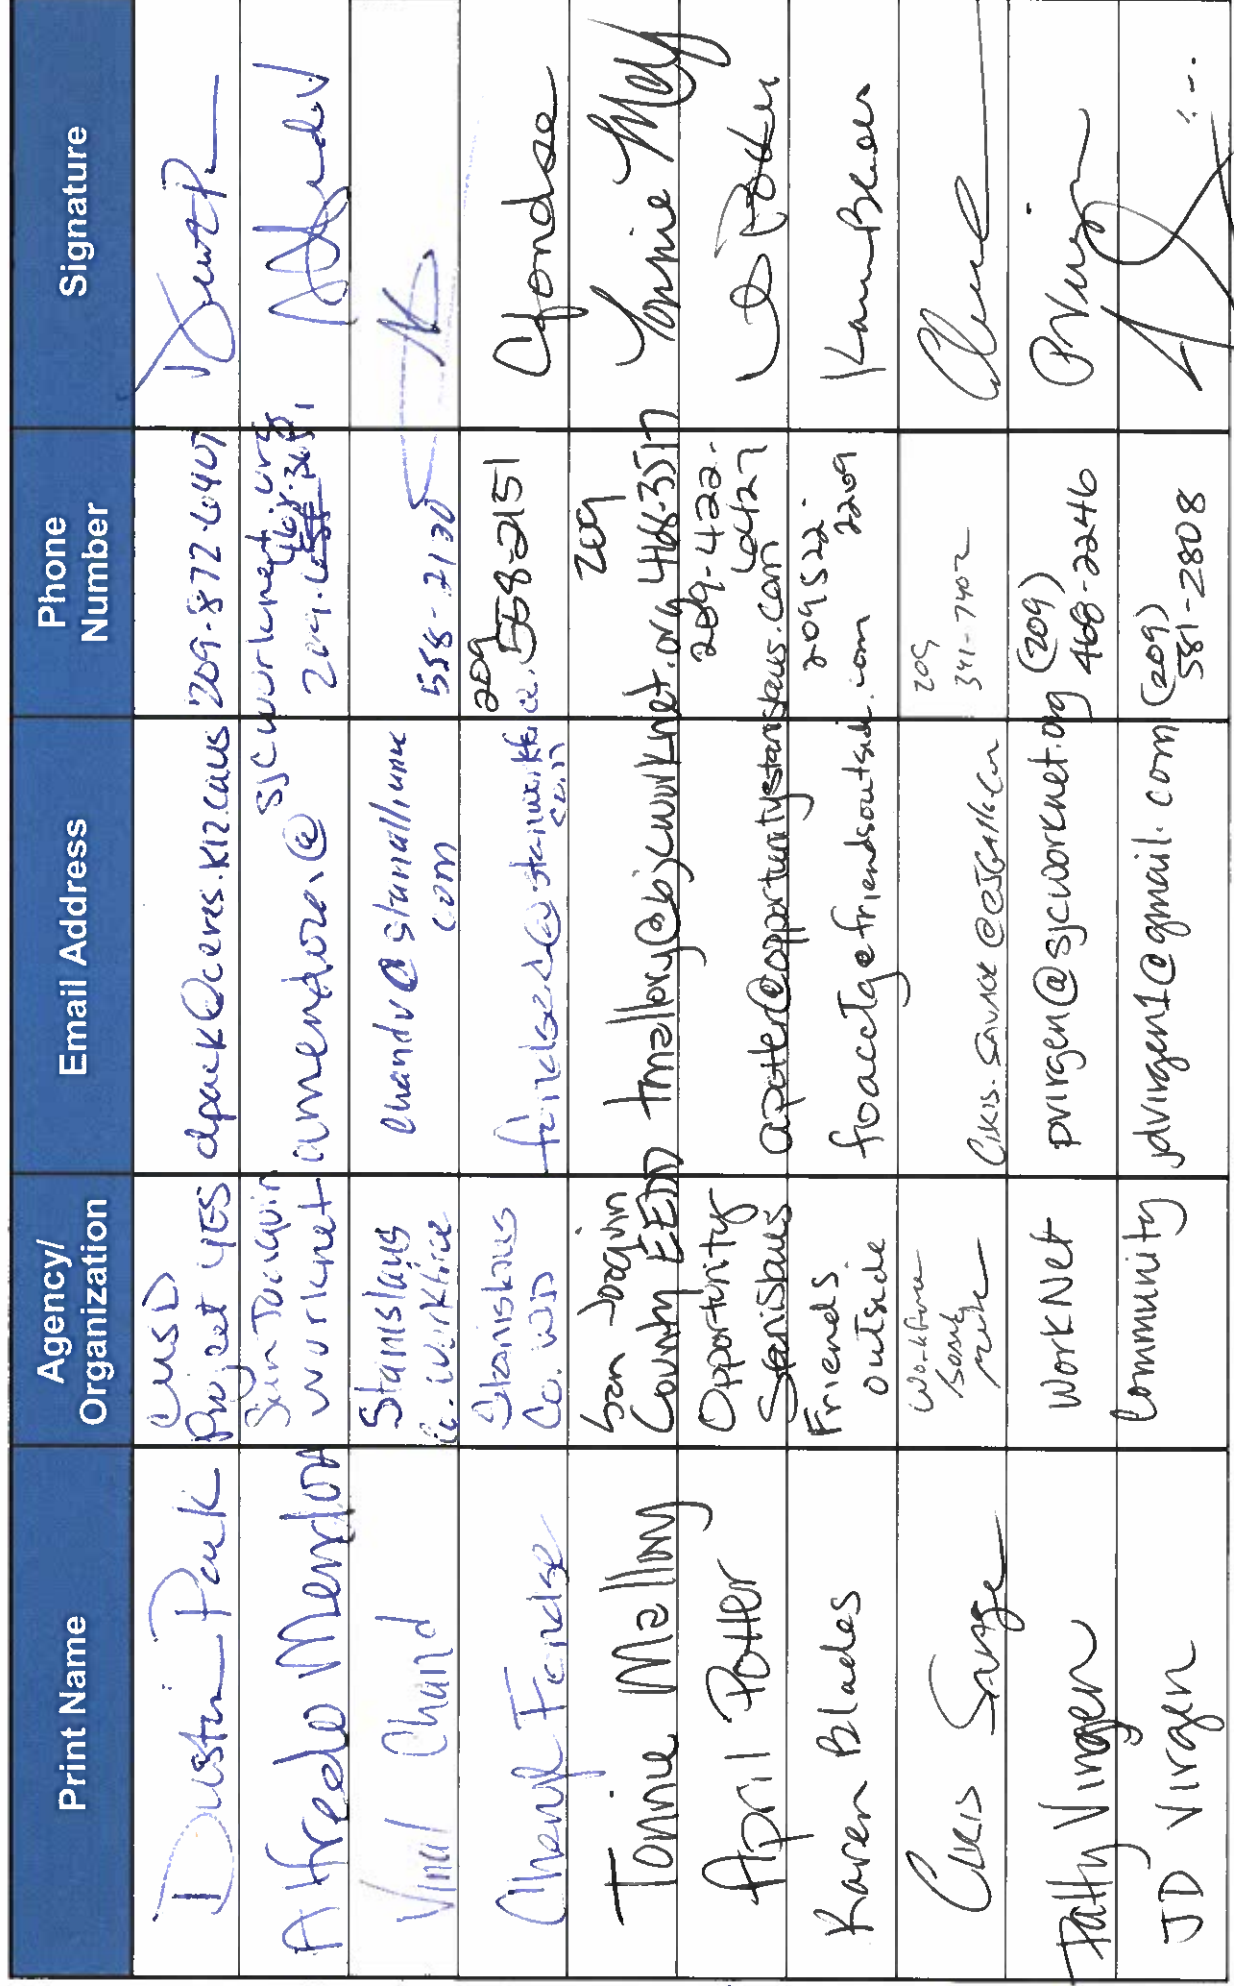 Print Name
Agency/
Organization
Email Address
Phone
Number
Signature
Dustin Pack
CUSD
Project YES
dpack@ceres.k12.ca.us
209-872-6407
Alfredo Mendoza
San Joaquin
Worknet
amendoza@
sjcworknet.org
209-468-3651
Vinal Chand
Stanislaus
Co. Workforce
chandv@stanalliance
com
558-2130
Cheryl Fondse
Stanislaus
Co. WD
fondsec@stanworkforce.
com
209
558-2151
CFondse
Tonine Mallory
San Joaquin
County EEDD
tmallory@sjcworknet.org
209
468-3517
April Potter
Opportunity
Stanislaus
apotter@opportunitystanislaus.com
209-422-
6427
Karen Blades
Friends
Outside
foacctg@friendsoutside.com
209 522-
2209
Karen Blades
Chris Savage
209
341-7402
Patty Virgen
WorkNet
pvirgen@sjcworknet.org
(209)
468-2246
PVirgen
JD Virgen
Community
jdvirgen1@gmail.com
(209)
581-2808